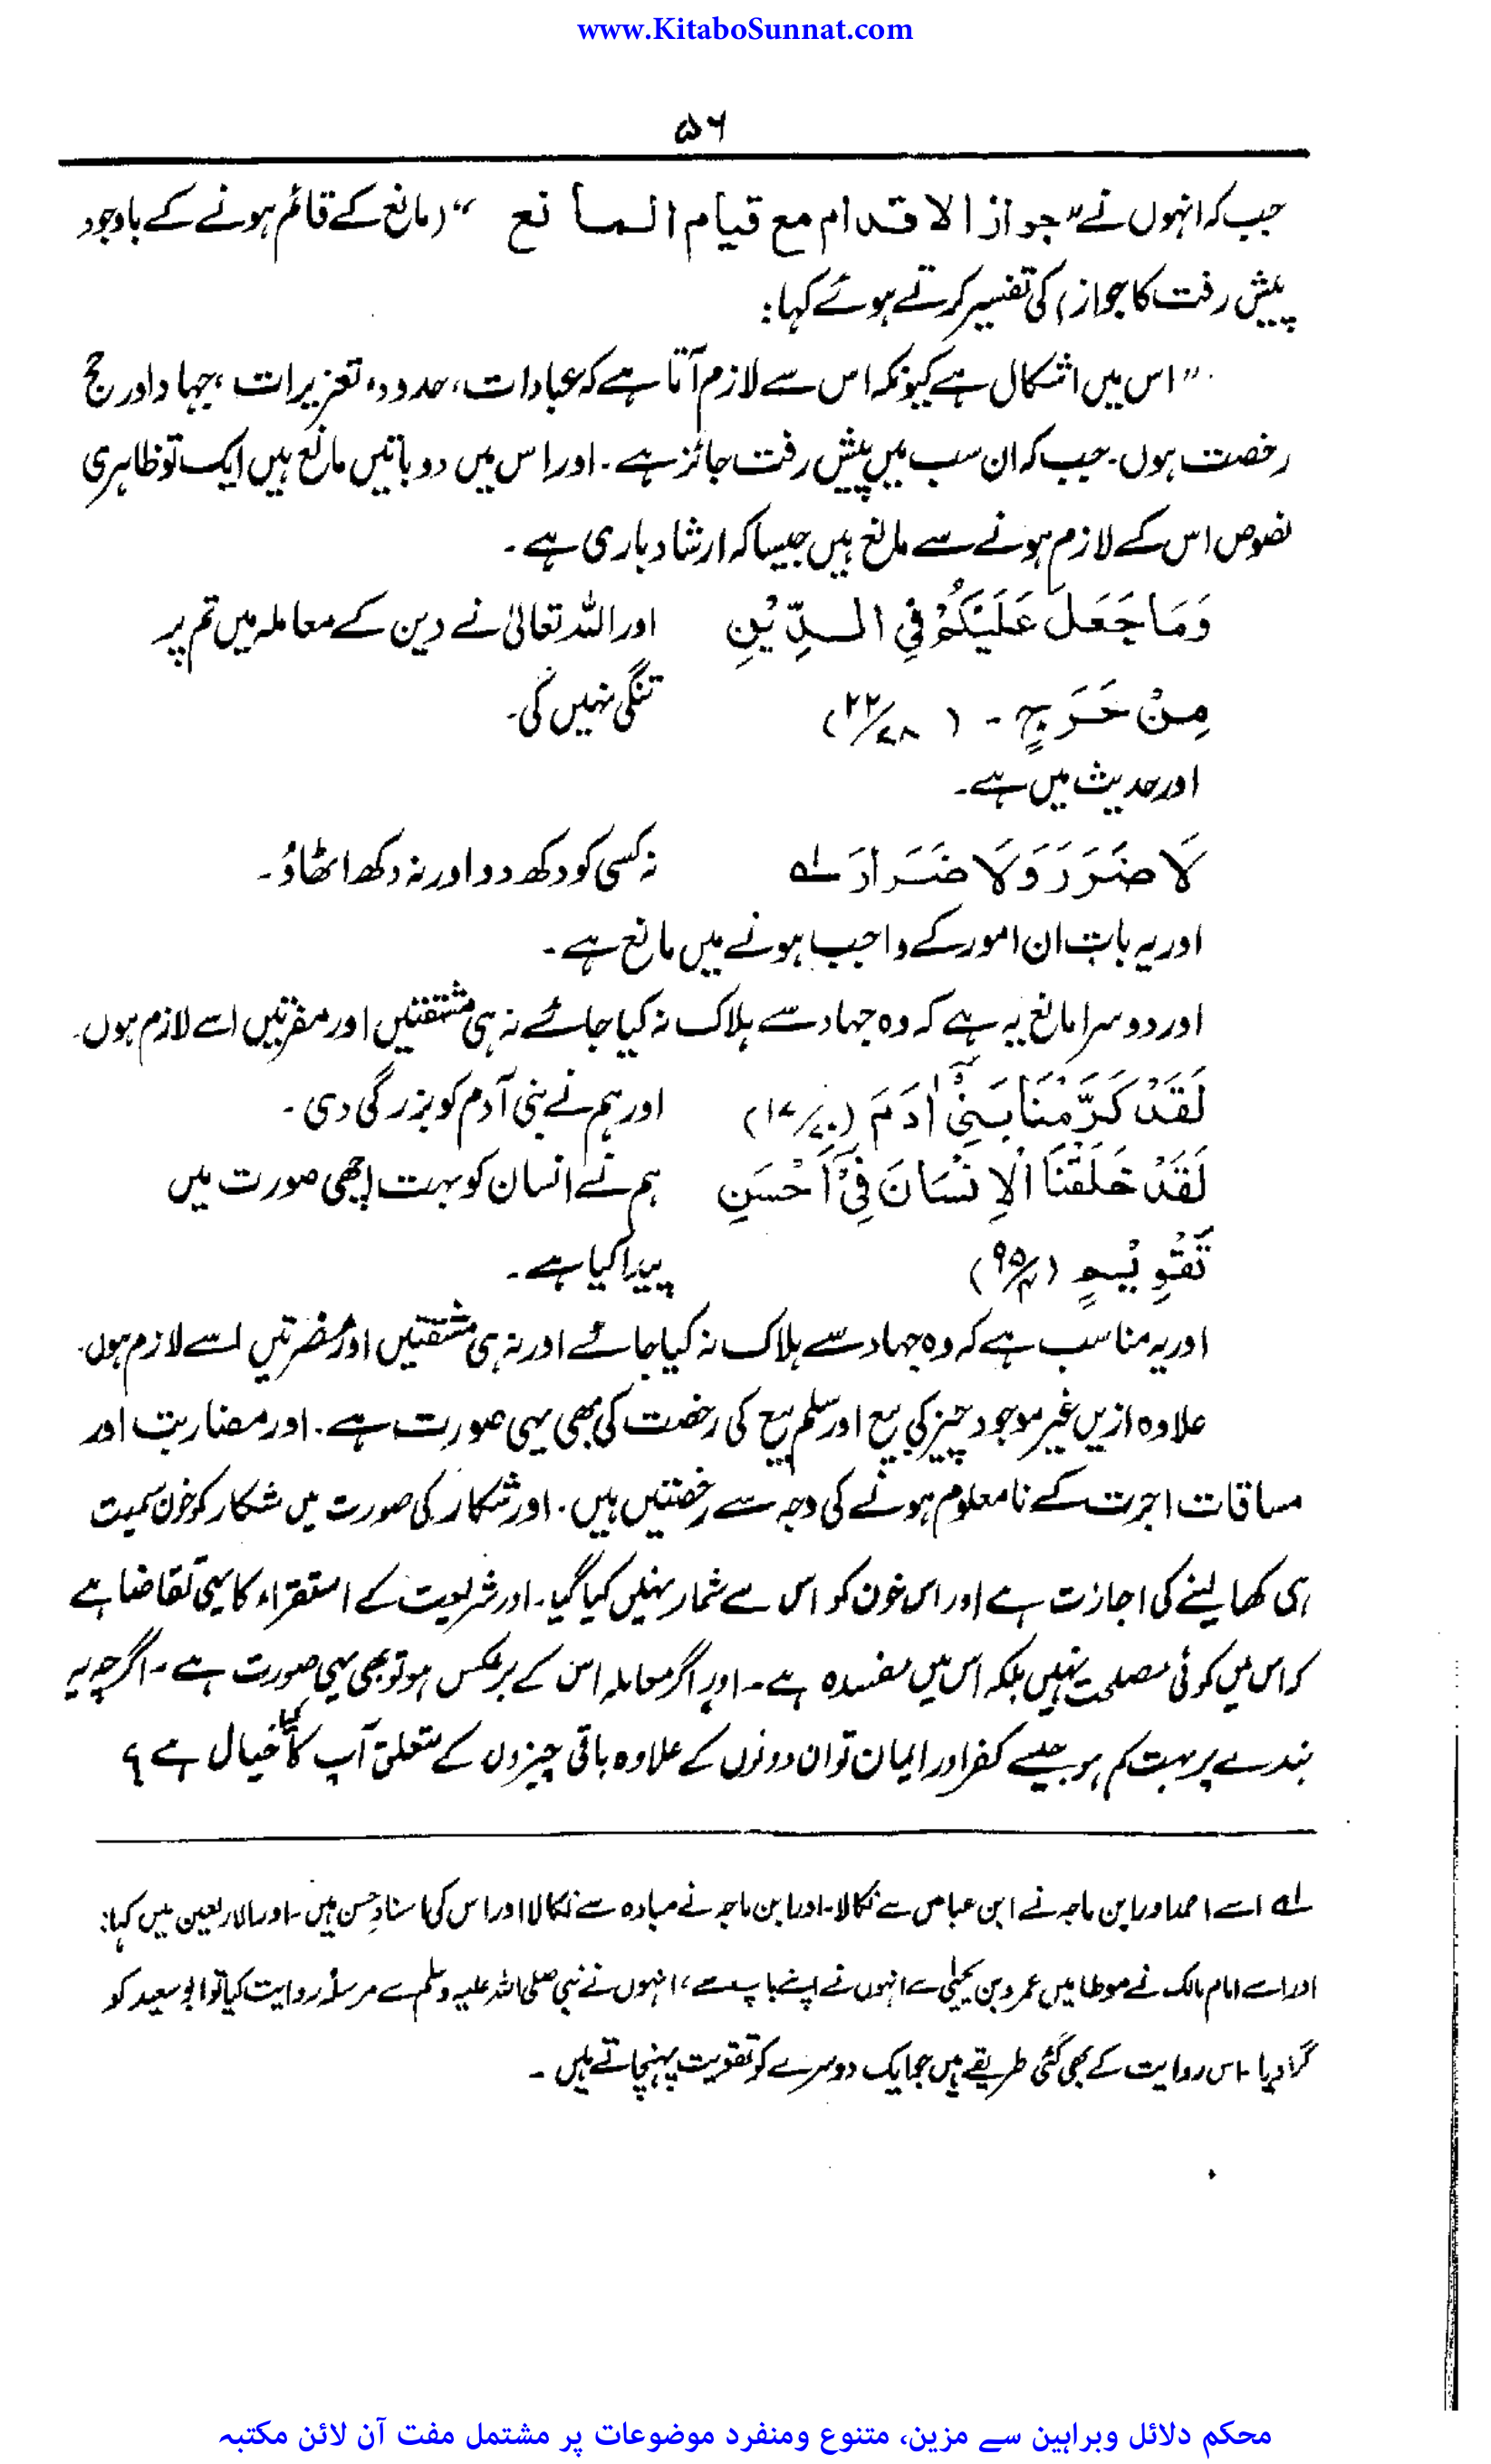 www.KitaboSunnat.com
۵۶
جب کہ انہوں نے "جواز الاقدام مع قیام المانع" (مانع کے قائم ہونے کے باوجود
پیش رفت کا جواز) کی تفسیر کرتے ہوئے کہا:
"اس میں اشکال ہے کیونکہ اس سے لازم آتا ہے کہ عبادات، حدود، تعزیرات، جہاد اور حج
رخصت ہوں۔ جب کہ ان سب میں پیش رفت جائز ہے۔ اور اس میں دو باتیں مانع ہیں ایک تو ظاہری
نصوص اس کے لازم ہونے سے مانع ہیں جیسا کہ ارشاد باری ہے۔
وَمَا جَعَلَ عَلَيْكُمْ فِي الدِّيْنِ اور اللہ تعالیٰ نے دین کے معاملہ میں تم پر
مِنْ حَرَجٍ - (۲۲/۷۸) تنگی نہیں کی۔
اور حدیث میں ہے۔
لَا ضَرَرَ وَلَا ضَرَارَ لہ نہ کسی کو دکھ دو اور نہ دکھ اٹھاؤ۔
اور یہ بات ان امور کے واجب ہونے میں مانع ہے۔
اور دوسرا مانع یہ ہے کہ وہ جہاد سے ہلاک نہ کیا جائے نہ ہی مشقتیں اور مضرتیں اسے لازم ہوں۔
لَقَدْ كَرَّمْنَا بَنِيْٓ اٰدَمَ (۱۷/۷۰) اور ہم نے بنی آدم کو بزرگی دی۔
لَقَدْ خَلَقْنَا الْاِنْسَانَ فِيْٓ اَحْسَنِ ہم نے انسان کو بہت اچھی صورت میں
تَقْوِيْمٍ (۹۵/۴) پیدا کیا ہے۔
اور یہ مناسب ہے کہ وہ جہاد سے ہلاک نہ کیا جائے اور نہ ہی مشقتیں اور مضرتیں اسے لازم ہوں۔
علاوہ ازیں غیر موجود چیز کی بیع اور سلم بیع کی رخصت کی بھی یہی صورت ہے۔ اور مضاربت اور
مساقات اجرت کے نا معلوم ہونے کی وجہ سے رخصتیں ہیں۔ اور شکار کی صورت میں شکار کو خون سمیت
ہی کھا لینے کی اجازت ہے اور اس خون کو اس سے شمار نہیں کیا گیا۔ اور شریعت کے استقراء کا یہی تقاضا ہے
کہ اس میں کوئی مصلحت نہیں بلکہ اس میں مفسدہ ہے۔ اور اگر معاملہ اس کے برعکس ہو تو بھی یہی صورت ہے۔ اگرچہ یہ
بندے پر بہت کم ہو جیسے کفر اور ایمان تو ان دونوں کے علاوہ باقی چیزوں کے متعلق آپ کا کیا خیال ہے؟
لہ اسے احمد اور ابن ماجہ نے ابن عباس سے نکالا۔ اور ابن ماجہ نے عبادہ سے نکالا اور اس کی اسناد حسن ہیں۔ اور الاربعین میں کہا:
اور اسے امام مالک نے موطا میں عمرو بن یحییٰ سے انہوں نے اپنے باپ سے، انہوں نے نبی صلی اللہ علیہ وسلم سے مرسلاً روایت کیا تو ابو سعید کو
گرا دیا۔ اس روایت کے بھی کئی طریقے ہیں جو ایک دوسرے کو تقویت پہنچاتے ہیں۔
محکم دلائل وبراہین سے مزین، متنوع ومنفرد موضوعات پر مشتمل مفت آن لائن مکتبہ